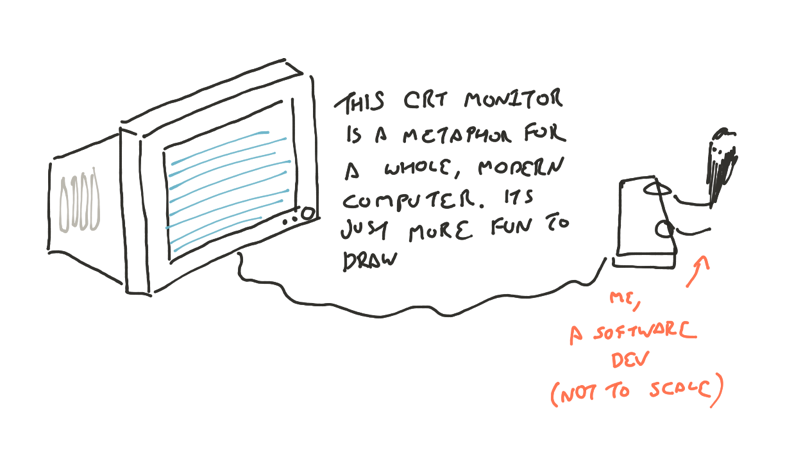 THIS CRT MONITOR
IS A METAPHOR FOR
A WHOLE, MODERN
COMPUTER. ITS
JUST MORE FUN TO
DRAW
ME,
A SOFTWARE
DEV
(NOT TO SCALE)